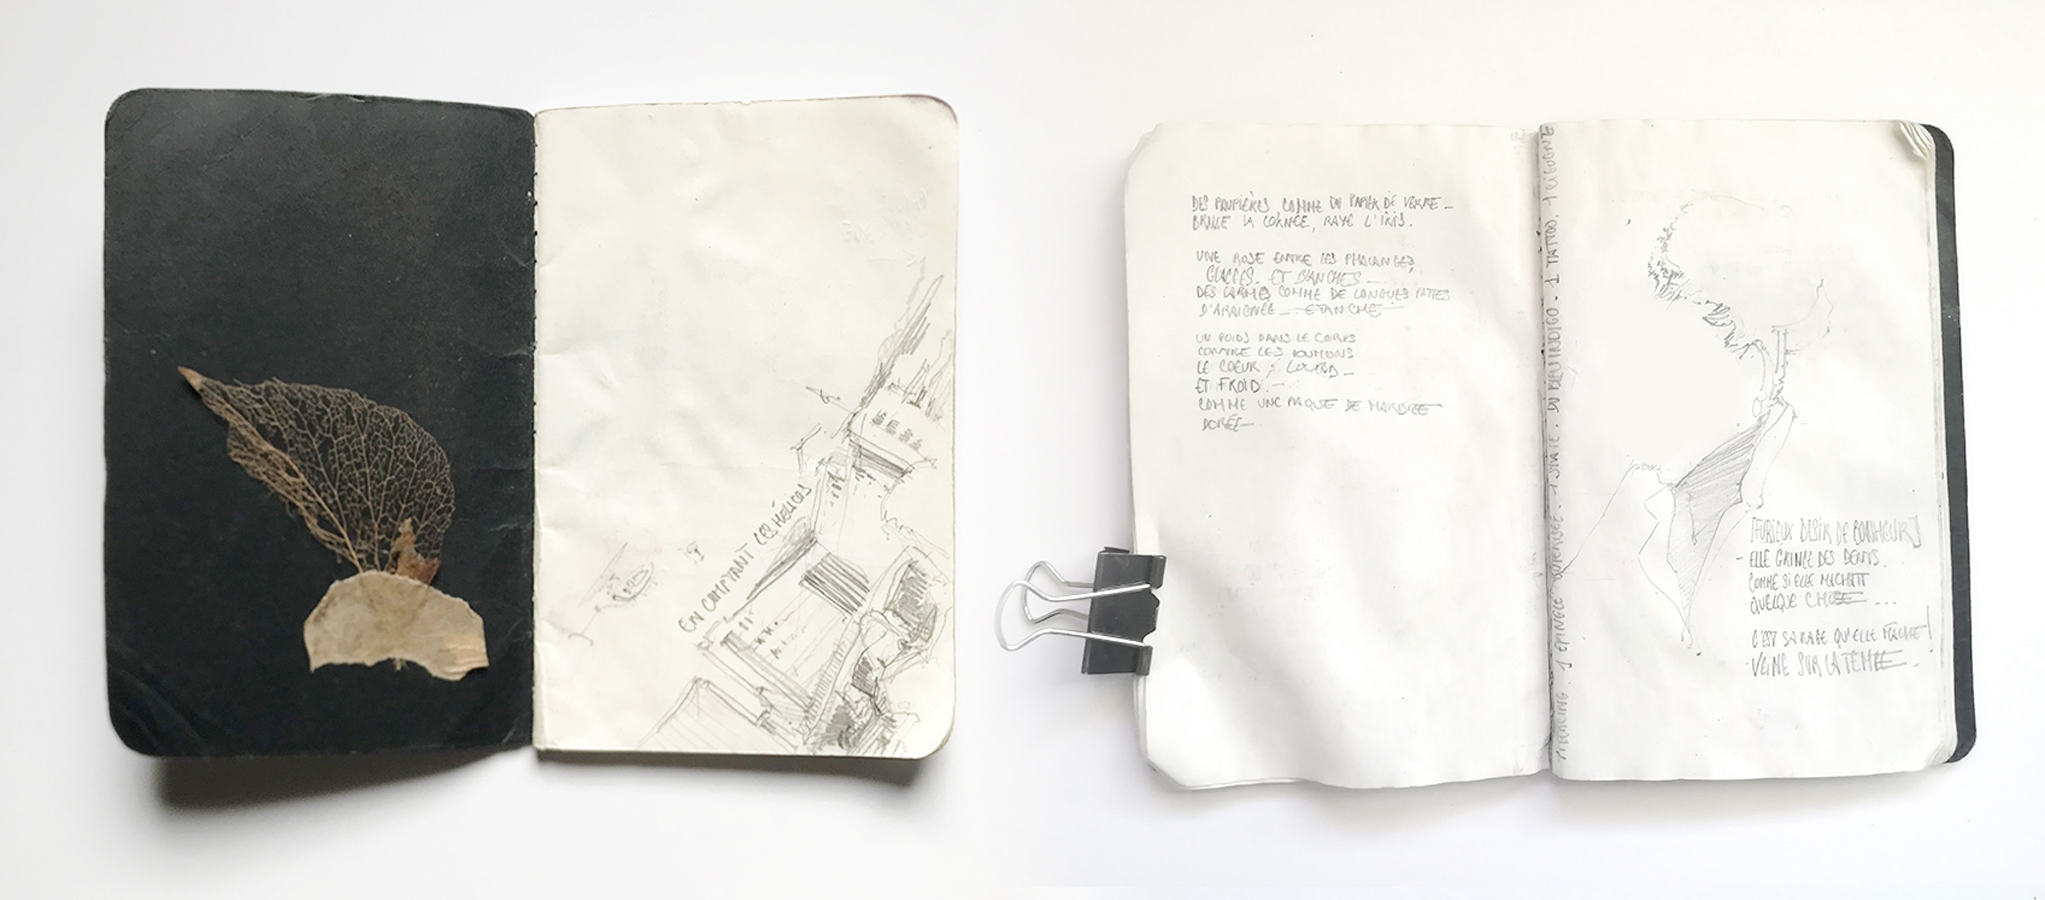 EN COMPTANT LES HÉLICES
DES PAUPIÈRES COMME DU PAPIER DE VERRE_
BRULE LA CORNÉE, RAYE L'IRIS.
UNE ROSE ENTRE LES PHALANGES,
GLACÉES. ET BLANCHES_
DES LARMES COMME DE LONGUES PATTES
D'ARAIGNÉE_ ETANCHE
UN POIDS DANS LE CORPS
CONTRE LES POUMONS
LE COEUR ; LOURD_
ET FROID._
COMME UNE PLAQUE DE MARBRE
DORÉE_
1 EPINGLE . 1 . DU BLEU INDIGO . 1 TATTOO, 1 CIGOGNE
[FURIEUX DESIR DE BONHEUR]
- ELLE GRINCE DES DENTS.
COMME SI ELLE MACHAIT
QUELQUE CHOSE ...
C'EST SA RAGE QU'ELLE MACHE!
VEINE SUR LA TEMPE_.